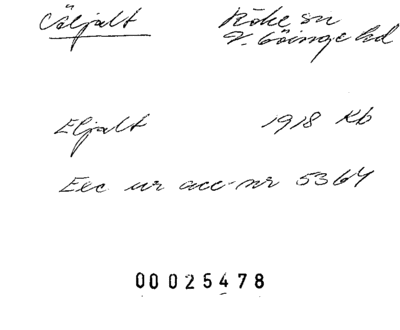 Cöljalt Röke sn
V. Göinge hd
Eljalt 1918 Kb
Exc ur acc-nr 5364
00025478